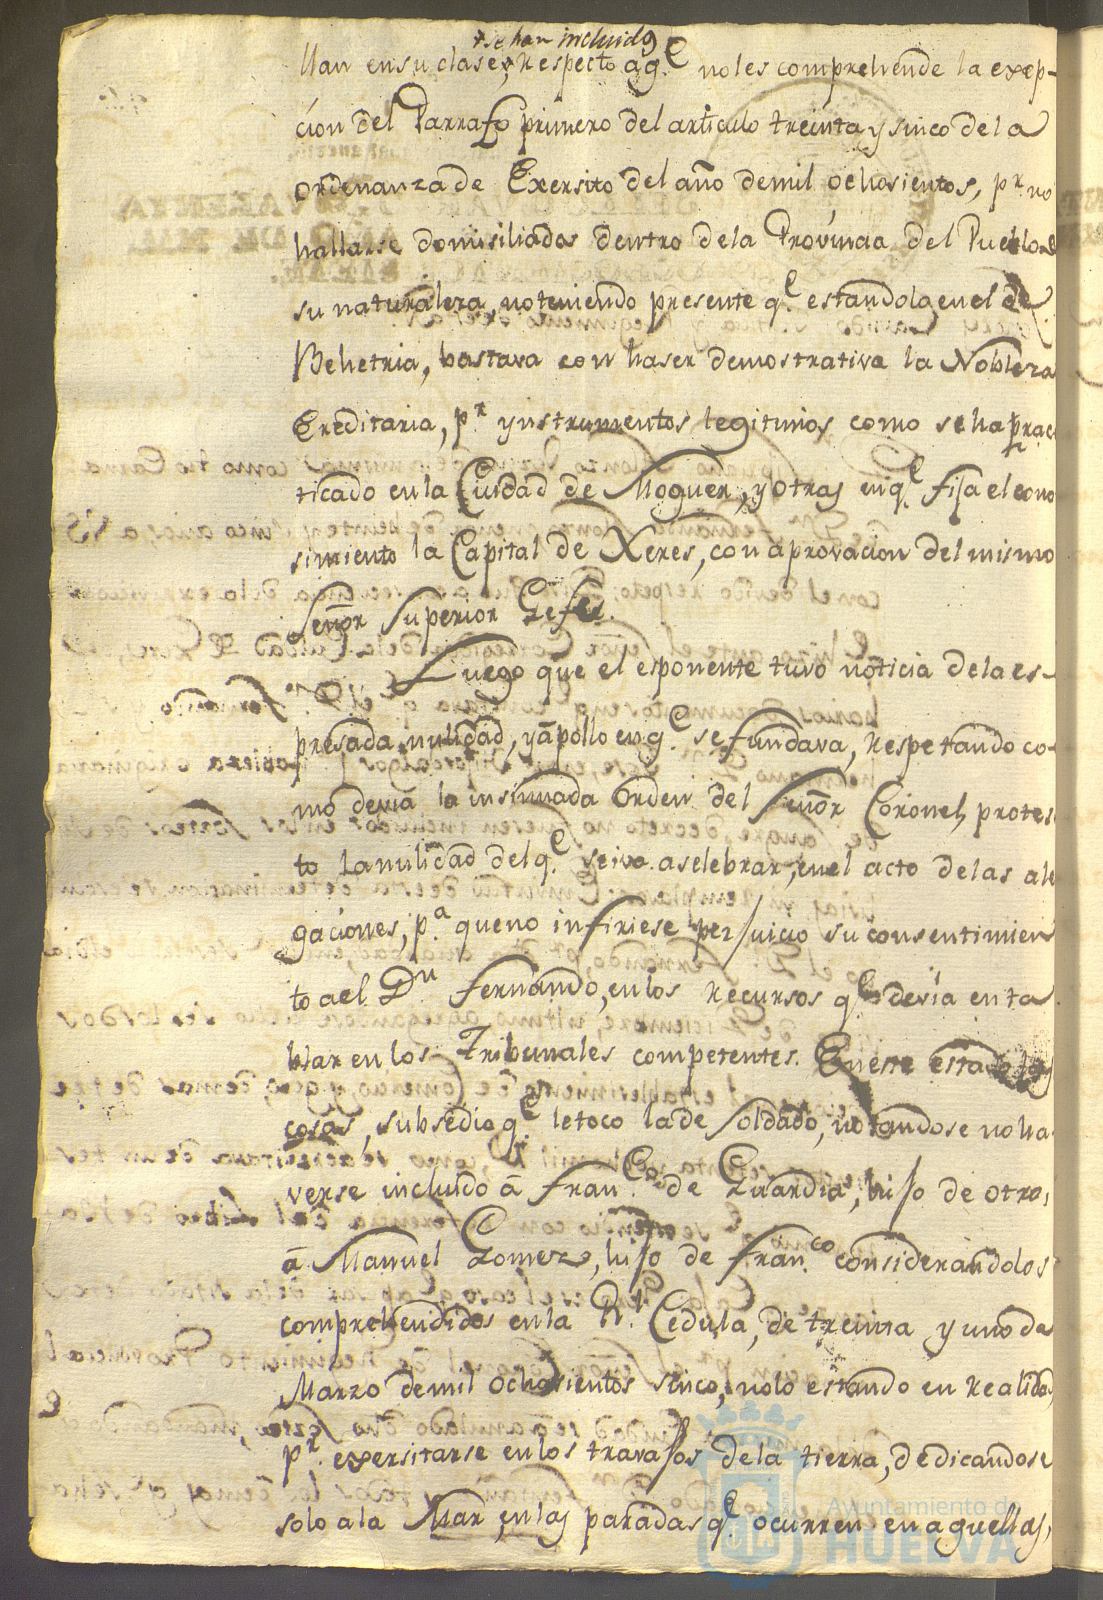 + se han incluido
llan en su clase, + respecto a q.e no les comprehende la exep-
cion del Parrafo primero del articulo treinta y sinco de la
ordenanza de Exersito del año de mil ochosientos, p.r no
hallarse domisiliados dentro de la Provincia del Pueblo de
su naturaleza, no teniendo presente q.e estandola en el de
Behetria, bastava con haser demostrativa la Nobleza
Ereditaria, p.r ynstrumentos legitimos como se ha prac
ticado en la Ciudad de Moguer, y otras en q.e fija el cono
simiento la Capital de Xeres, con aprovacion del mismo
Señor Superior Gefe.
Luego que el esponente tuvo noticia de la es-
presada nulidad, y apollo en q.e se fundava, respetando co-
mo devia la insinuada orden del Señor Coronel, protes
to la nulidad del q.e se iva a selebrar, en el acto de las ale
gaciones, p.a que no infiriese perjuicio su consentimien
to a el D.n Fernando, en los recursos q.e devia enta
blar en los Tribunales competentes. En este estado las
cosas, subsedio q.e le toco la de Soldado, notandose no ha
verse incluido á Fran.co de Guardia, hijo de otro,
á Manuel Gomez, hijo de Fran.co considerandolos
comprehendidos en la R.l Cedula, de treinta y uno de
Marzo de mil ochosientos sinco, no lo estando en realidad,
p.r exersitarse en los travajos de la tierra, dedicandose
solo a la Mar, en las paradas q.e ocurren en aquellas,
Ayuntamiento de
HUELVA